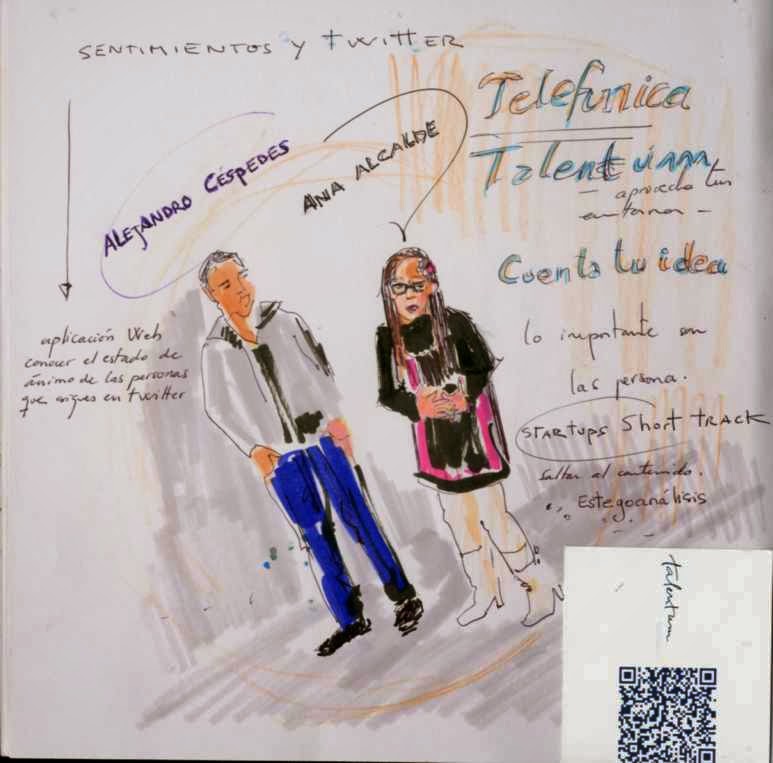 SENTIMIENTOS y twitter
ALEJANDRO CÉSPEDES
ANA ALCALDE
aplicación Web
conocer el estado de
ánimo de las personas
que sigues en twitter
Telefonica
Talentum
- aprovecha tu
entorno -
Cuenta tu idea
lo importante son
las persona.
STARTUPS Short TRACK
Saltar al contenido.
Estegoanálisis
talentum